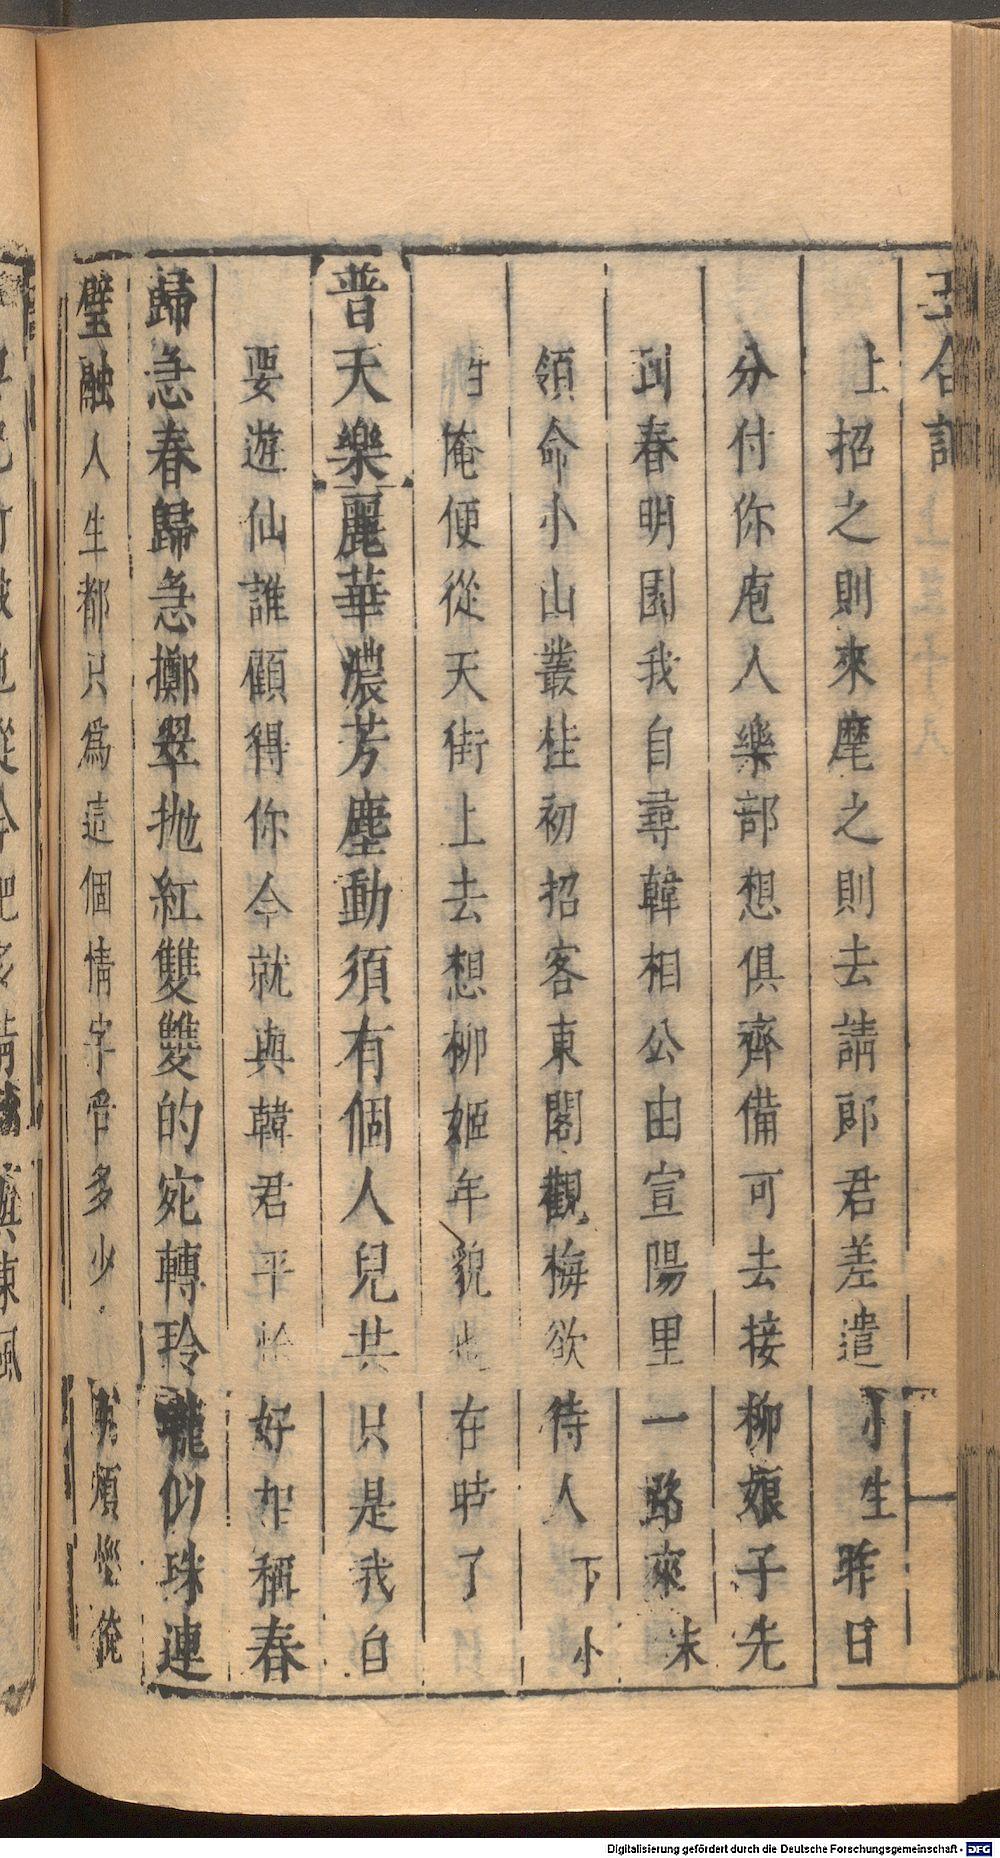 玉合記
上招之則來麾之則去請郎君差遣小生昨日
分付你庖人樂部想俱齊備可去接柳娘子先
到春明園我自尋韓相公由宣陽里一路來末
領命小山叢桂初招客東閣觀梅欲待人下小
俺便從天街上去想柳姬年貌也在時了
普天樂麗華濃芳塵動須有個人兒共只是我自
要遊仙誰顧得你今就與韓君平恰好相稱春
歸急春歸急擲翠拋紅雙雙的宛轉玲瓏似珠連
璧融人生都只爲這個情字受多少煩惱俺
Digitalisierung gefördert durch die Deutsche Forschungsgemeinschaft - DFG